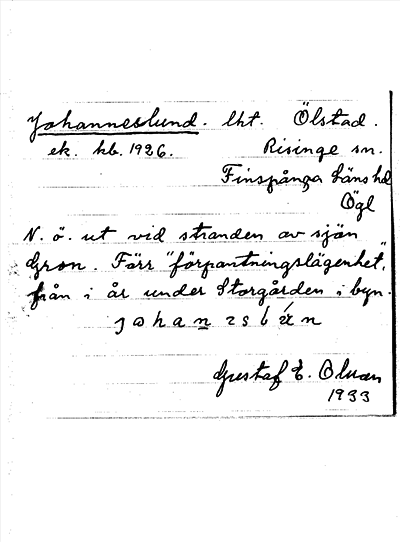 Johanneslund. lht. Ölstad.
ek. hb. 1926. Risinge sn.
Finspånga läns hd
Ögl
N. ö. ut vid stranden av sjön
Gron. Förr "förpantningslägenhet",
från i år under Storgården i byn.
Gustaf E. Olman
1933